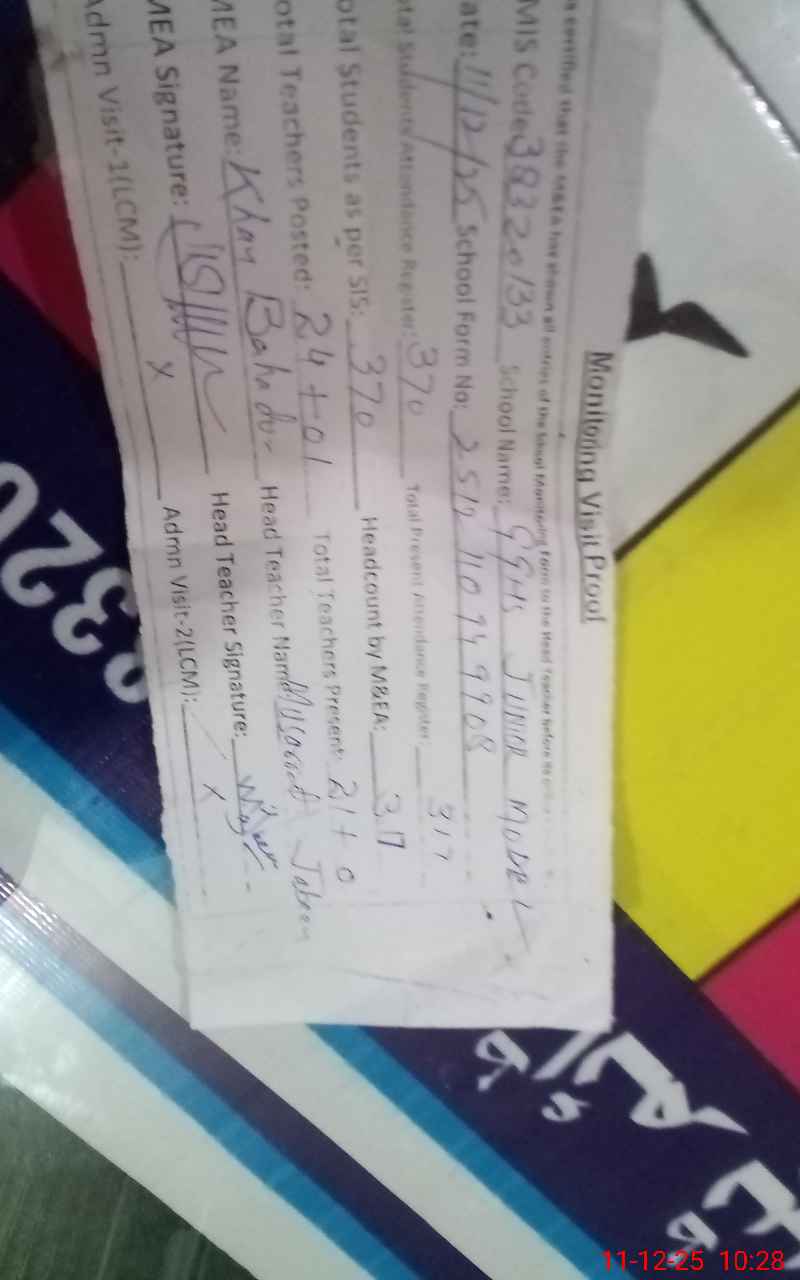 Monitoring Visit Proof
certified that the M&EA has shown all entries of the School Monitoring Form to the Head Teacher before
MIS Code 38320133 School Name: GGHS JUNIOR MODEL
ate: 11/12/25 School Form No:
otal Students Attendance Register: 370 Total Present Attendance Register: 317
otal Students as per SIS: 370 Headcount by M&EA: 317
otal Teachers Posted: 24+01 Total Teachers Present: 21+0
MEA Name: Khan Bahadur Head Teacher Name Musarrat Jabeen
MEA Signature: Head Teacher Signature:
Admn Visit-1(LCM): x Admn Visit-2(LCM): x
3320
11-12-25 10:28